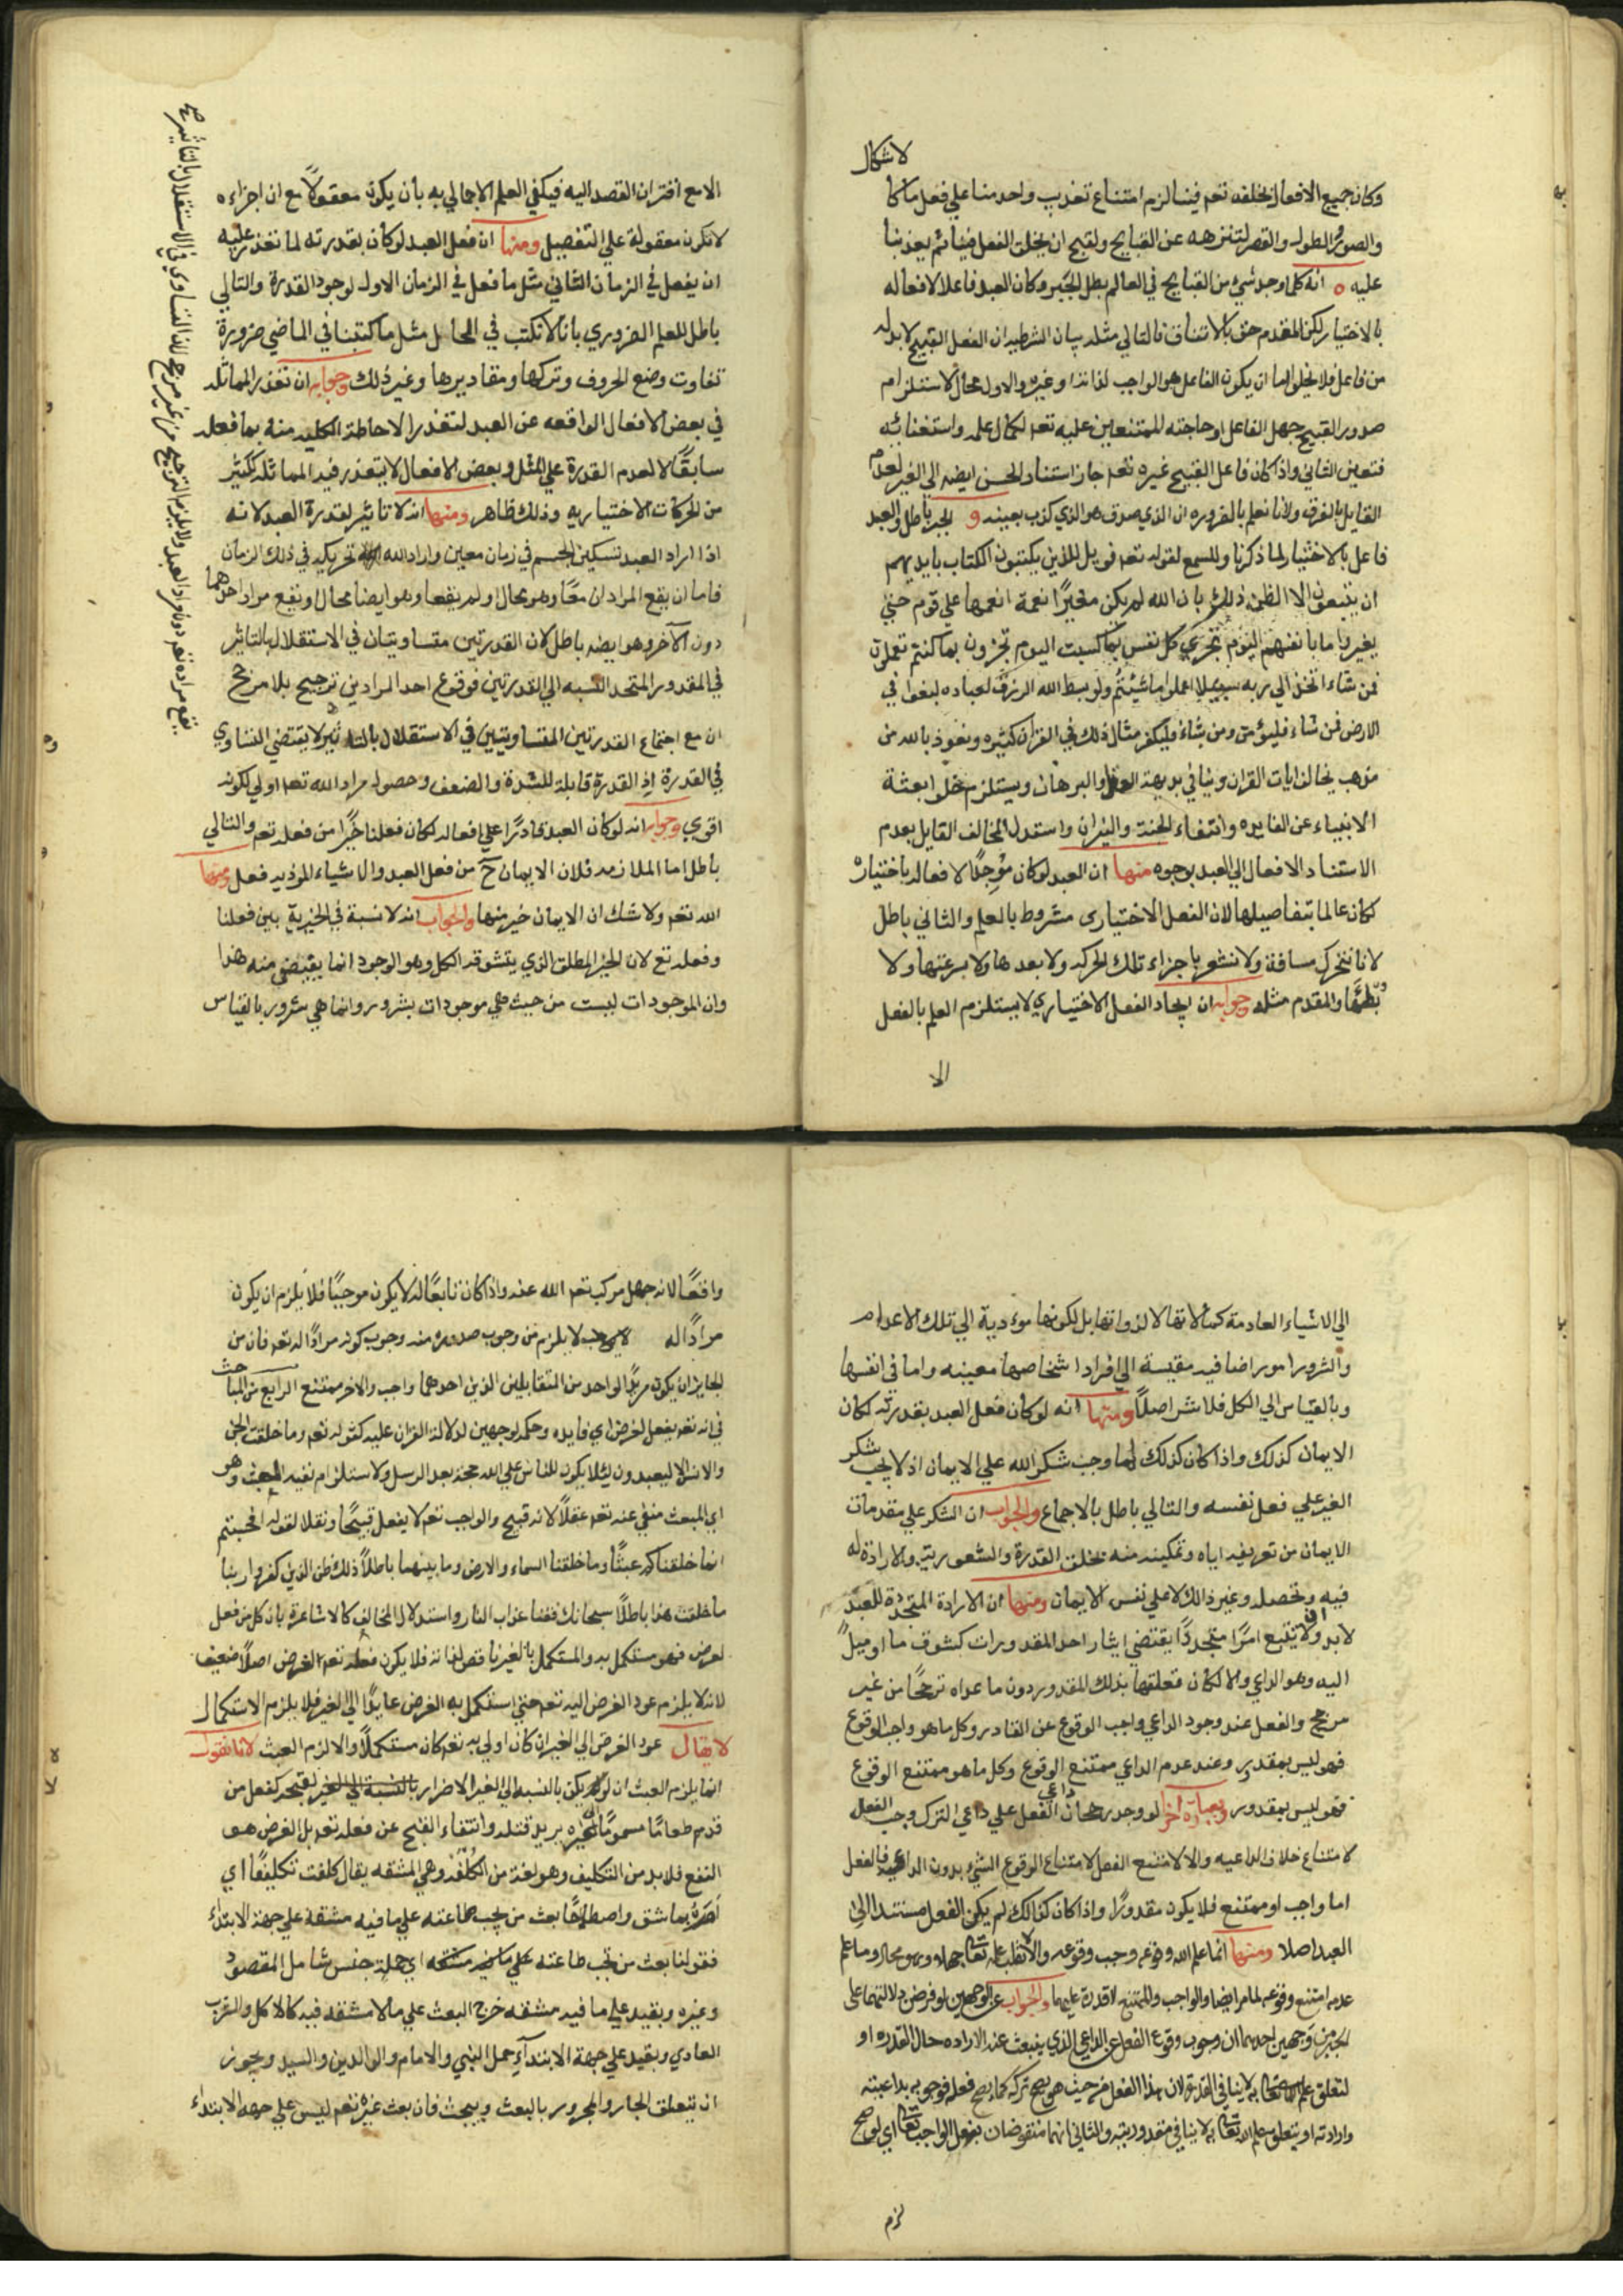 لاشكال
وكان جميع الافعال بخلقه تعم فينا لزم امتناع تعذيب واحد منا علي فعل ما كا
والصور الطول والقصر لتنزهه عن القبايح ولقبح ان يخلق الفعل فينا ثم يعذبنا
عليه ه انه كلما وجد شيء من القبايح في العالم بطل الجبر وكان العبد فاعلا لافعاله
بالاختيار لكن المقدم حق بالاتفاق فالتالي مثله بيان الشرطيه ان الفعل القبيح لا بد له
من فاعل فلا يخلوا اما ان يكون الفاعل هو الواجب لذاته او غيره والاول محال لاستلزام
صدور القبيح جهل الفاعل او حاجته الممتنعين عليه تعم لكمال علمه واستغنائه
فتعين الثاني واذا كان فاعل القبيح غيره تعم جاز استناد الحسن ايضه الي الغير لعدم
القايل بالفرق ولانا نعلم بالضروره ان الذي صدق هو الذي كذب بعينه و الجبر باطل والعبد
فاعل بالاختيار لما ذكرنا وللسمع لقوله تعم فويل للذين يكتبون الكتاب بايديهم
ان يتبعون الا الظن ذلك بان الله لم يكن مغيرا نعمة انعمها علي قوم حتي
يغيروا ما بانفسهم اليوم تجزي كل نفس بما كسبت اليوم تجزون بما كنتم تعملون
فمن شاء اتخذ الي ربه سبيلا اعملوا ما شئتم ولو بسط الله الرزق لعباده لبغوا في
الارض فمن شاء فليؤمن ومن شاء فليكفر مثال ذلك في القران كثيره ونعوذ بالله من
مذهب يخالف ايات القران وينافي بديهة العقل والبرهان ويستلزم خلو بعثة
الانبياء عن الفايده وانتفاء الجنة والنيران واستدل المخالف القايل بعدم
الاستناد الافعال الي العبد بوجوه منها ان العبد لو كان موجدا لافعاله باختياره
لكان عالما بتفاصيلها لان الفعل الاختياري مشروط بالعلم والثاني باطل
لانا نتحرك مسافة ولا نشعر باجزاء تلك الحركه ولا بعدها ولا سرعتها ولا
بطئها والمقدم مثله وجوابه ان ايجاد الفعل الاختياري لا يستلزم العلم بالفعل
الا
الا مع اقتران القصد اليه فيكفي العلم الاجمالي به بان يكون معقولا مع ان اجزاءه
لا تكون معقولة علي التفصيل ومنها ان فعل العبد لو كان بقدرته لما تعذر عليه
ان يفعل في الزمان الثاني مثل ما فعل في الزمان الاول لوجود القدرة والتالي
باطل للعلم الضروري بانا لا نكتب في الحال مثل ما كتبنا في الماضي ضرورة
تفاوت وضع الحروف وتركها ومقاديرها وغير ذلك وجوابه ان تعذر المماثله
في بعض الافعال الواقعه عن العبد لتعذر الاحاطة الكليه منه بما فعله
سابقا لا لعدم القدرة علي المثل وبعض الافعال لا يتعذر فيه المماثله ككثير
من الحركات الاختياريه وذلك ظاهر ومنها انه لا تاثير لقدرة العبد لانه
اذا اراد العبد تسكين الجسم في زمان معين واراد الله تحريكه في ذلك الزمان
فاما ان يقع المرادان معا وهو محال او لم يقعا وهو ايضا محال او يقع مراد احدهما
دون الآخر وهو ايضه باطل لان القدرتين متساويتان في الاستقلال بالتاثير
في المقدور المتحد النسبه الي القدرتين فوقوع احد المرادين ترجيح بلا مرجح
ان مع اجتماع القدرتين المتساويتين في الاستقلال بالتاثير لا يقتضي التساوي
في القدرة اذ القدرة قابلة للشدة والضعف وحصول مراد الله تعم اولي لكونه
اقوي وجوابه انه لو كان العبد قادرا علي افعاله لكان فعلنا خيرا من فعله تعم والتالي
باطل اما الملازمه فلان الايمان ح من فعل العبد والاشياء المؤذيه فعل ومنها
الله تعم ولا شك ان الايمان خير منها والجواب انه لا نسبة في الخيرية بين فعلنا
وفعله تع لان الخير المطلق الذي يتشوقه الكل وهو الوجود انما يقتضي منه هذا
وان الموجودات ليست من حيث هي موجودات بشرور وانما هي شرور بالقياس
يقع مراده تعم دون مراد العبد ولا يلزم الترجيح من غير مرجح اذ التساوي في الاستقلال بالتاثير صح
الي الاشياء العادمة كمالاتها لا لذواتها بل لكونها مؤدية الي تلك الاعدام
والشرور امور اضافيه مقيسة الي افراد اشخاصها معينه واما في انفسها
وبالقياس الي الكل فلا شر اصلا ومنها انه لو كان فعل العبد بقدرته لكان
الايمان كذلك واذا كان كذلك لما وجب شكر الله علي الايمان اذ لا يجب شكر
الغير علي فعل نفسه والتالي باطل بالاجماع والجواب ان الشكر علي مقدمات
الايمان من تعريفه اياه وتمكينه منه بخلق القدرة والشعور به والارادة له
فيه وتحصله وغير ذلك لا علي نفس الايمان ومنها ان الارادة المتجددة للعبد
لا بد وان تتبع امرا متجددا يقتضي ايثار احد المقدورات كشوق ما او ميل
اليه وهو الداعي والا لكان تعلقها بذلك المقدور دون ما عداه ترجحا من غير
مرجح والفعل عند وجود الداعي واجب الوقوع عن القادر وكل ما هو واجب الوقوع
فهو ليس بمقدور وعند عدم الداعي ممتنع الوقوع وكل ما هو ممتنع الوقوع
فهو ليس بمقدور وبعبارة اخري لو وجد رجحان داعي الفعل علي داعي الترك وجب الفعل
لامتناع خلاف الداعيه والا لامتنع الفعل لامتناع الوقوع الشيء بدون الداعي فالفعل
اما واجب او ممتنع فلا يكون مقدورا واذا كان كذلك لم يكن الفعل مستندا الي
العبد اصلا ومنها انما علم الله وقوعه وجب وقوعه والا لانقلب علمه تعالي جهلا وهو محال وما علم
عدمه امتنع وقوعه لما مر ايضا والواجب والممتنع لا قدرة عليهما والجواب عن الوجهين لو فرض دلالتهما علي
الجبر من وجهين احدهما ان وجوب وقوع الفعل عن الداعي الذي ينبعث عنه الاراده حال القدره او
لتعلق علم الله تعالي به لا ينافي القدرة لان هذا الفعل من حيث هو يصح تركه كما يصح فعله فوجوبه بداعيته
وارادته او بتعلق علم الله تعالي به لا ينافي مقدوريته والثاني انهما منقوضان بفعل الواجب تعالي اي لو صح
لزم
واقعا لانه جهل مركب تعم الله عنه واذا كان تابعا له لا يكون موجبا فلا يلزم ان يكون
مرادا له لا يلزم من وجوب صدوره منه وجوب كونه مرادا له تعم فان من
الجايز ان يكون مريدا لواحد من المتقابلين الذين احدهما واجب والاخر ممتنع الرابع من المباحث
في انه تعم يفعل لغرض اي فايده وحكمه لوجهين لدلالة القران عليه كقوله تعم وما خلقت الجن
والانس الا ليعبدون لئلا يكون للناس علي الله حجة بعد الرسل ولاستلزام نفيه العبث وهو
اي العبث منفي عنه تعم عقلا لانه قبيح والواجب تعم لا يفعل قبيحا ونقلا لقوله افحسبتم
انما خلقناكم عبثا وما خلقنا السماء والارض وما بينهما باطلا ذلك ظن الذين كفروا ربنا
ما خلقت هذا باطلا سبحانك فقنا عذاب النار واستدلال المخالف كالاشاعرة بان كل من فعل
لغرض فهو مستكمل به والمستكمل بالغير ناقص لذاته فلا يكون فعله تعم لغرض اصلا ضعيف
لانه لا يلزم عود الغرض اليه تعم حتي استكمل به الغرض عايدا الي الغير فلا يلزم الاستكمال
لا يقال عود الغرض الي الغير ان كان اولي به تعم كان مستكملا والا لزم العبث لانا نقول
انما يلزم العبث ان لو لم يكن بالنسبه الي الغير الاضرار بالنسبة الي الغير لقبحه كفعل من
قدم طعاما مسموما الي غيره يريد قتله وانتفاء القبح عن فعله تعم بل الغرض هو
النفع فلا بد من التكليف وهو لغة من الكلفة وهي المشقه يقال كلفت تكليفا اي
امره بما شق واصطلاحا بعث من يجب طاعته علي ما فيه مشقة علي جهة الابتداء
فقولنا بعث من تجب طاعته علي ما فيه مشقه اي جملة جنس شامل المقصود
وغيره وبقيد علي ما فيه مشقه خرج البعث علي ما لا مشقه فيه كالاكل والشرب
العادي وبقيد علي جهة الابتداء حمل النبي والامام والوالدين والسيد ويجوز
ان يتعلق الجار والمجرور بالبعث ويبحث فان بعث غيره تعم ليس علي جهة الابتداء